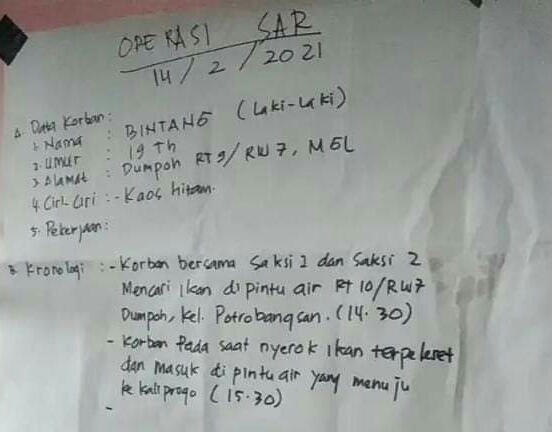 OPERASI SAR
14/2/2021
A. Data Korban:
1. Nama : BINTANG (Laki-Laki)
2. Umur : 19 Th
3. Alamat : Dumpoh RT 9/RW 7, MGL
4. Ciri-Ciri : - Kaos hitam.
5. Pekerjaan:
B. Kronologi : - Korban bersama Saksi 1 dan Saksi 2
Mencari ikan di pintu air Rt 10/RW7
Dumpoh, Kel. Potrobangsan. (14.30)
- Korban Pada saat nyerok ikan terpeleset
dan masuk di pintu air yang menuju
ke kali progo (15.30)
-